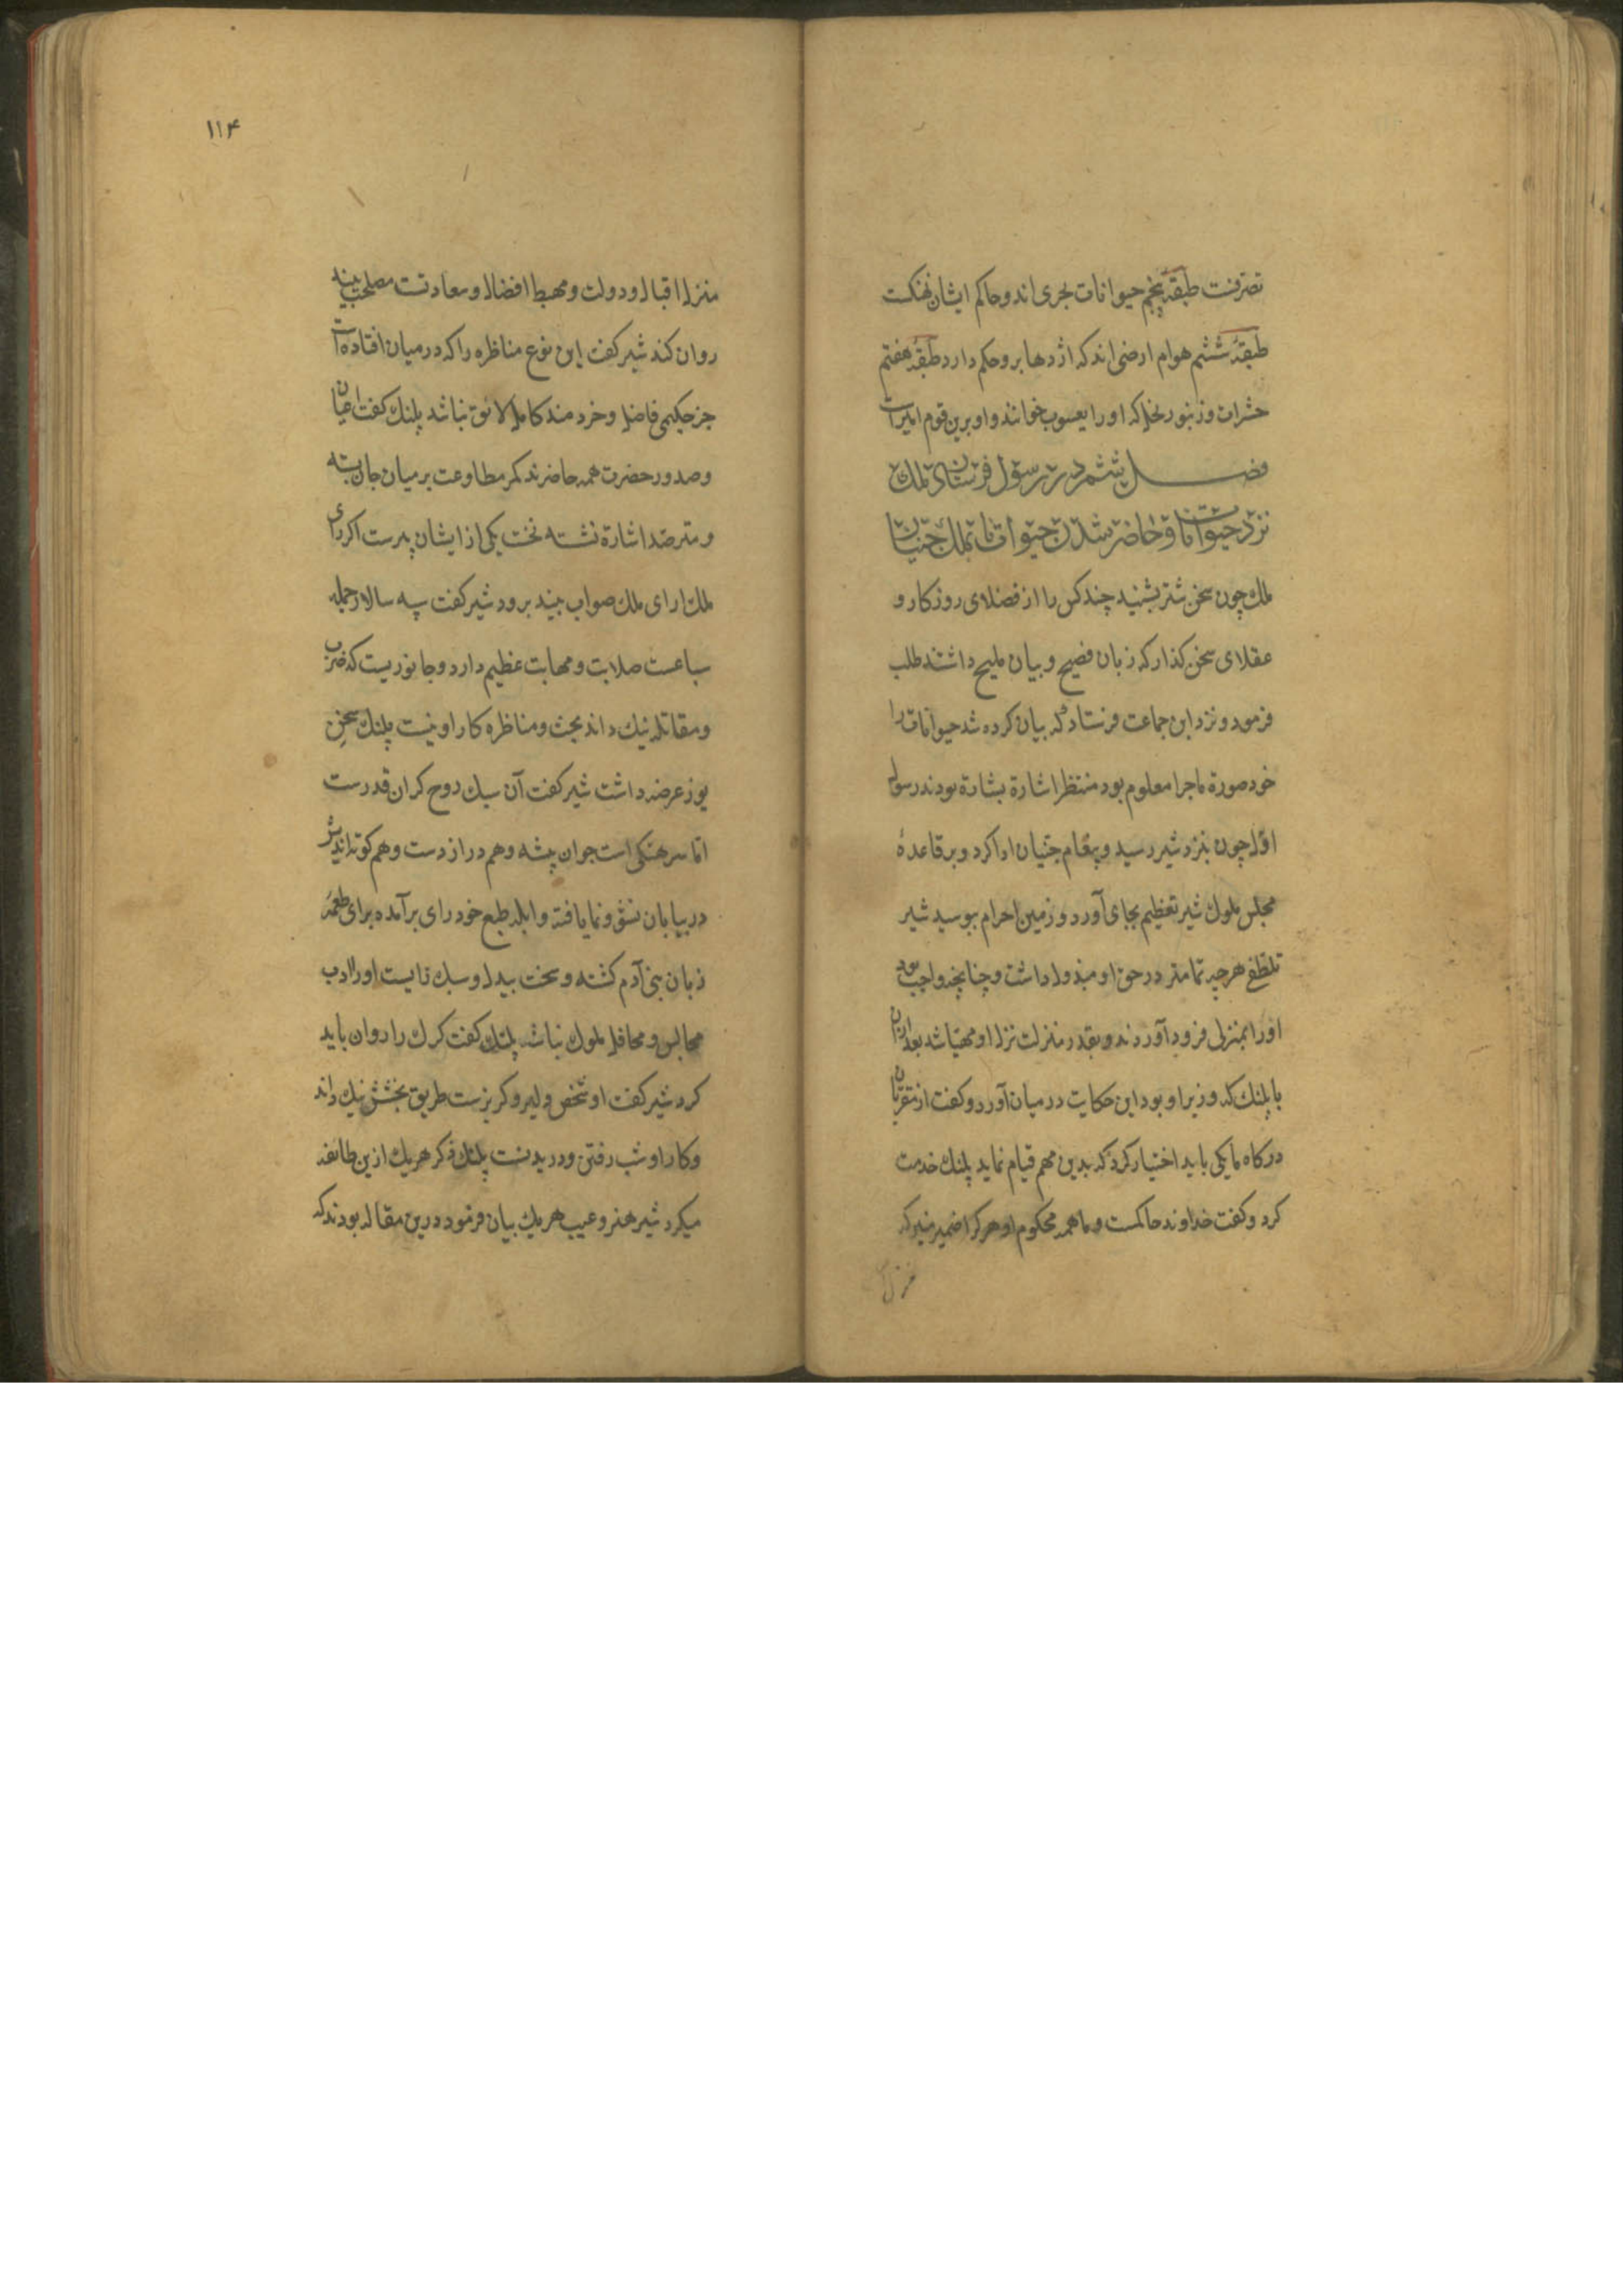 تصرفست طبقهٔ پنجم حیوانات بحری اند و حاکم ایشان نهنکست
طبقهٔ ششم هوام ارضی اند که اژدها برو حکم دارد طبقهٔ هفتم
حشرات و زنبور نحل که اورا یعسوب خوانند و او برین قوم امیرست
فصل ششم در رسول فرستادن ملک
نزد حیوانات و حاضر شدن حیوانات بملک جنیان
ملک چون سخن شتر بشنید چند کس را از فضلای روزکار و
عقلای سخن کذار که زبان فصیح و بیان ملیح داشتند طلب
فرمود و نزد این جماعت فرستاد که بیان کرده شد حیوانات را
خود صورة ماجرا معلوم بود منتظر اشارة بشارة بودند رسول
اوّل چون بنزد شیر رسید و پیغام جنیان ادا کرد و بر قاعدهٔ
مجلس ملوک شیر تعظیم بجای آورد و زمین احرام ببوسید شیر
تلطّفی هرچه تمامتر در حق او مبذول داشت و چنانچه واجب بود
اورا بمنزلی فرود آوردند و بقدر منزلت نزل او مهیّا شد بعد ازان
با پلنک که وزیر او بود این حکایت در میان آورد و کفت از مقرّبان
درکاه ما یکی باید اختیار کرد که بدین مهم قیام نماید پلنک خدمت
کرد و کفت خداوند حاکمست و ما همه محکوم او هرکرا ضمیر منیر که
منزل
۱۱۴
منزل اقبال و دولت و مهبط افضال و سعادتست مصلحت بیند
روان کند شیر کفت این نوع مناظره را که در میان افتاده است
جز حکیمی فاضل و خردمند کامل لایق نباشد پلنک کفت اعیان
و صدور حضرت همه حاضرند کمر مطاوعت بر میان جان بسته
و مترصّد اشارة نشسته نخست یکی از ایشان ببرست اکر رای
ملک ارای ملک صواب بیند برود شیر کفت سپه سالار حمله
سباعست صلابت و مهابت عظیم دارد و جانوریست که ضرب
و مقاتله نیک داند بحث و مناظره کار او نیست پلنک سخن
یوز عرضه داشت شیر کفت آن سبک روح کران قدرست
امّا سرهنکی است جوان پیشه و هم دراز دست و هم کوته اندیش
در بیابان نشو و نما یافته و ابله طبع خود رای برآمده برای طعمهٔ
زبان بنی آدم کشته و سخت بیدل و سبک تا یست اورا ادب
مجالس و محافل ملوک نباشد پلنک کفت کرک را روان باید
کرد شیر کفت او شخص دلیر و کربزست طریق بخشش نیک داند
و کار او شب رفتن و دریدنست پلنک ذکر هریک ازین طائفه
میکرد شیر هنر و عیب هریک بیان فرمود درین مقاله بودند که